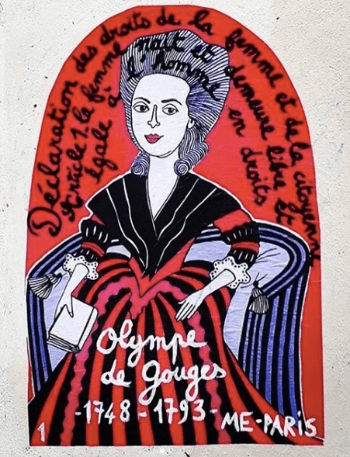 Déclaration des droits de la femme et de la citoyenne
Article 1 la femme naît et demeure libre et
égale à l'homme en droits
Olympe
de Gouges
-1748-1793-
ME-PARIS
1